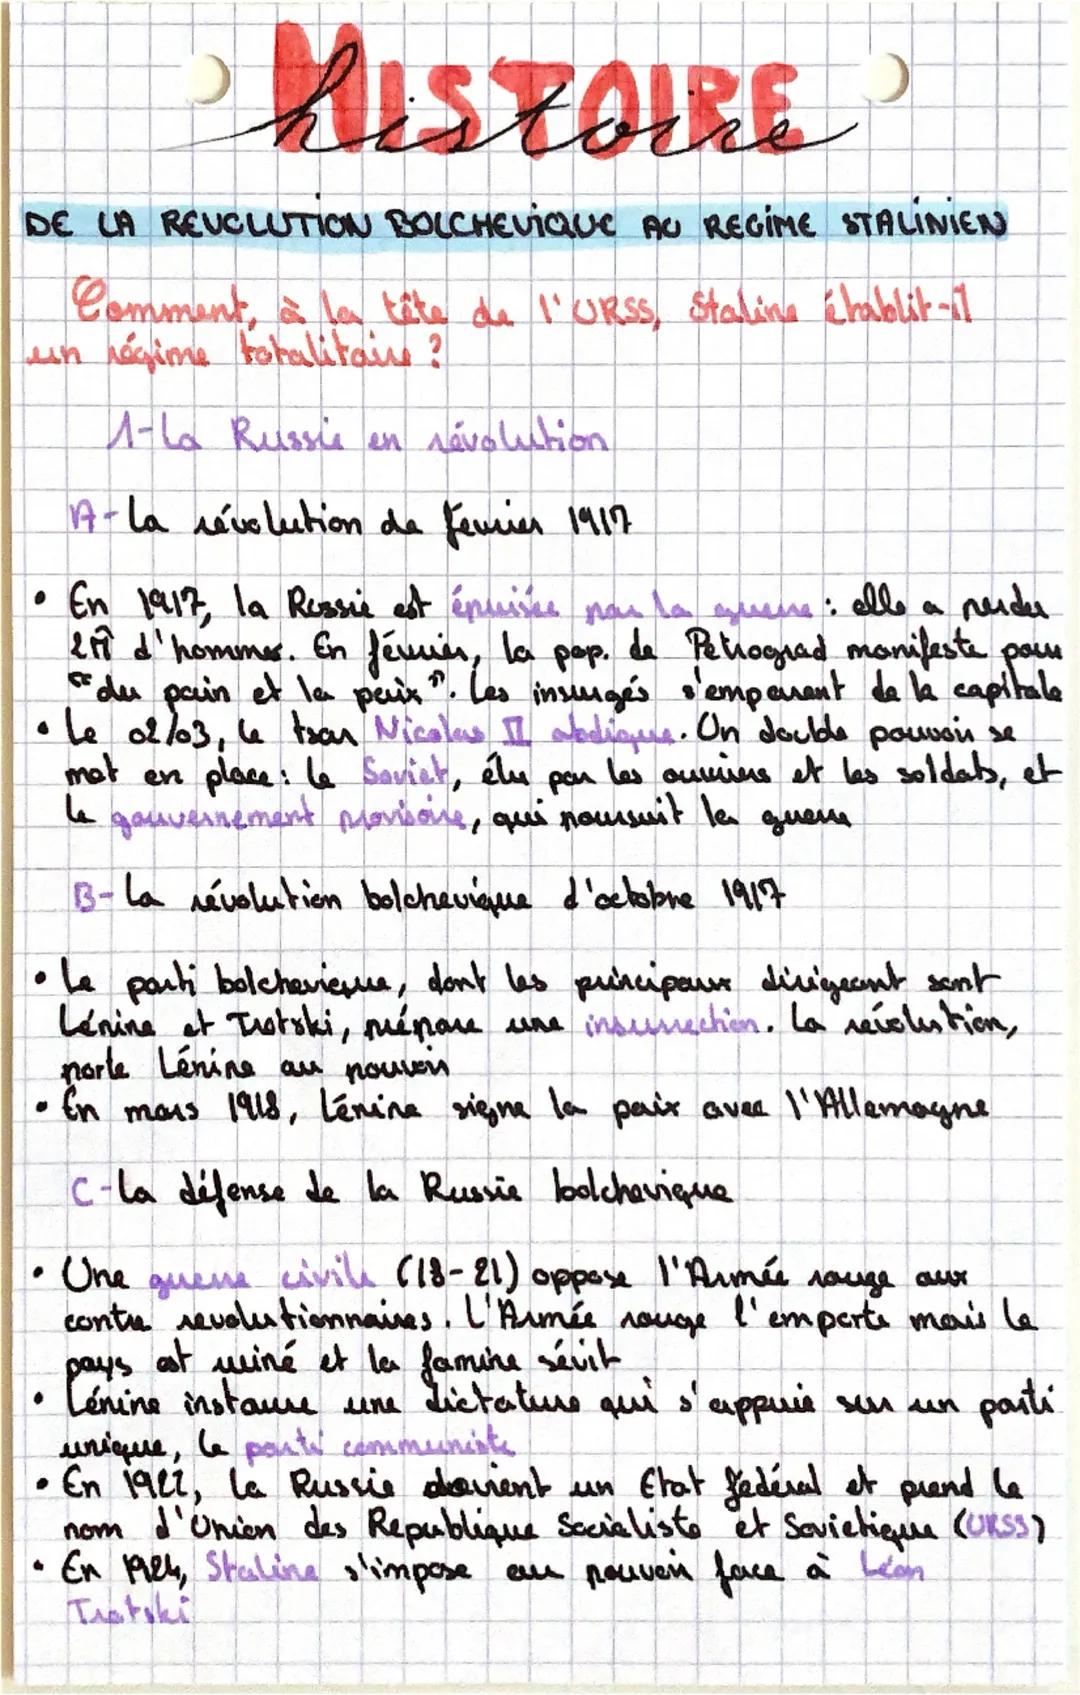 HISTOIRE
histoire
DE LA REVOLUTION BOLCHEVIQUE AU REGIME STALINIEN
Comment, à la tête de l'URSS, Staline établit-il
un régime totalitaire ?
1-La Russie en révolution
A-La révolution de fevrier 1917
• En 1917, la Russie est épuisée par la guerre : elle a perdu
2M d'hommes. En février, la pop. de Petrograd manifeste pour
"du pain et la paix". Les insurgés s'emparent de la capitale
• Le 02/03, le tsar Nicolas II abdique. Un double pouvoir se
met en place : le Soviet, élu par les ouvriers et les soldats, et
le gouvernement provisoire, qui poursuit la guerre
B-La révolution bolchevique d'octobre 1917
• Le parti bolchevique, dont les principaux dirigeant sont
Lénine et Trotski, prépare une insurrection. La révolution,
porte Lénine au pouvoir
• En mars 1918, Lénine signe la paix avec l'Allemagne
C-La défense de la Russie bolchevique
• Une guerre civile (18-21) oppose l'Armée rouge aux
contre revolutionnaires. L'Armée rouge l'emporte mais le
pays est ruiné et la famine sévit
• Lénine instaure une dictature qui s'appuie sur un parti
unique, le parti communiste
• En 1922, la Russie devient un Etat fédéral et prend le
nom d'Union des Republique Socialiste et Sovietique (URSS)
• En 1924, Staline s'impose au pouvoir face à Léon
Trotski